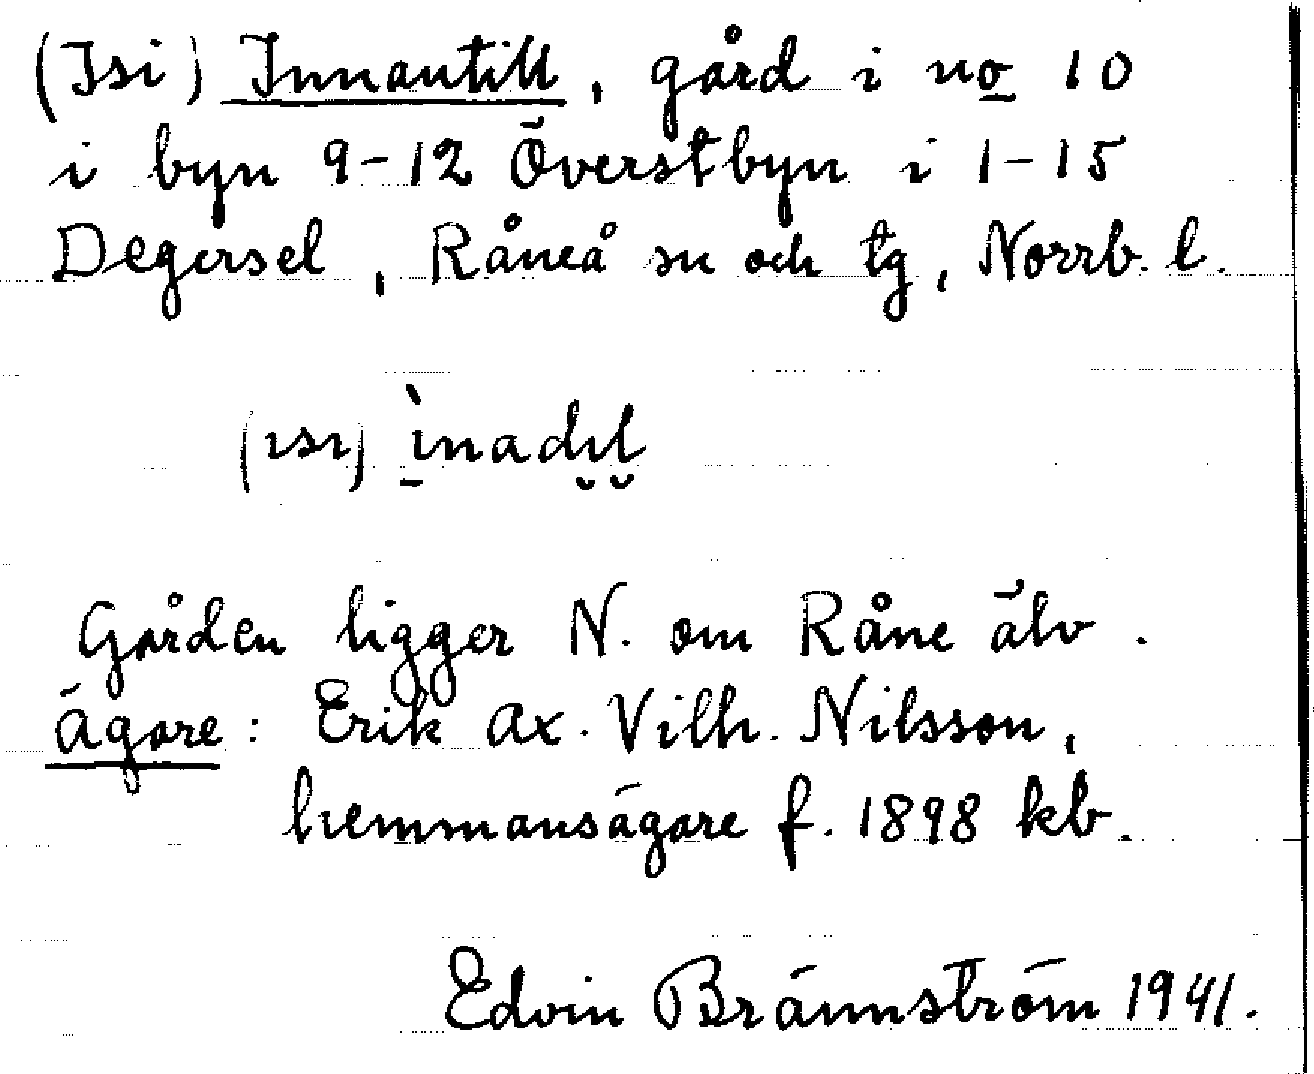 (Isi) Innantill, gård i no 10
i byn 9-12 Överstbyn i 1-15
Degersel, Råneå sn och tg, Norrb. l.
(ısı) ı̱̀nadı̮l̮
Gården ligger N. om Råne älv.
Ägare: Erik Ax. Vilh. Nilsson,
hemmansägare f. 1898 kb.
Edvin Brännström 1941.